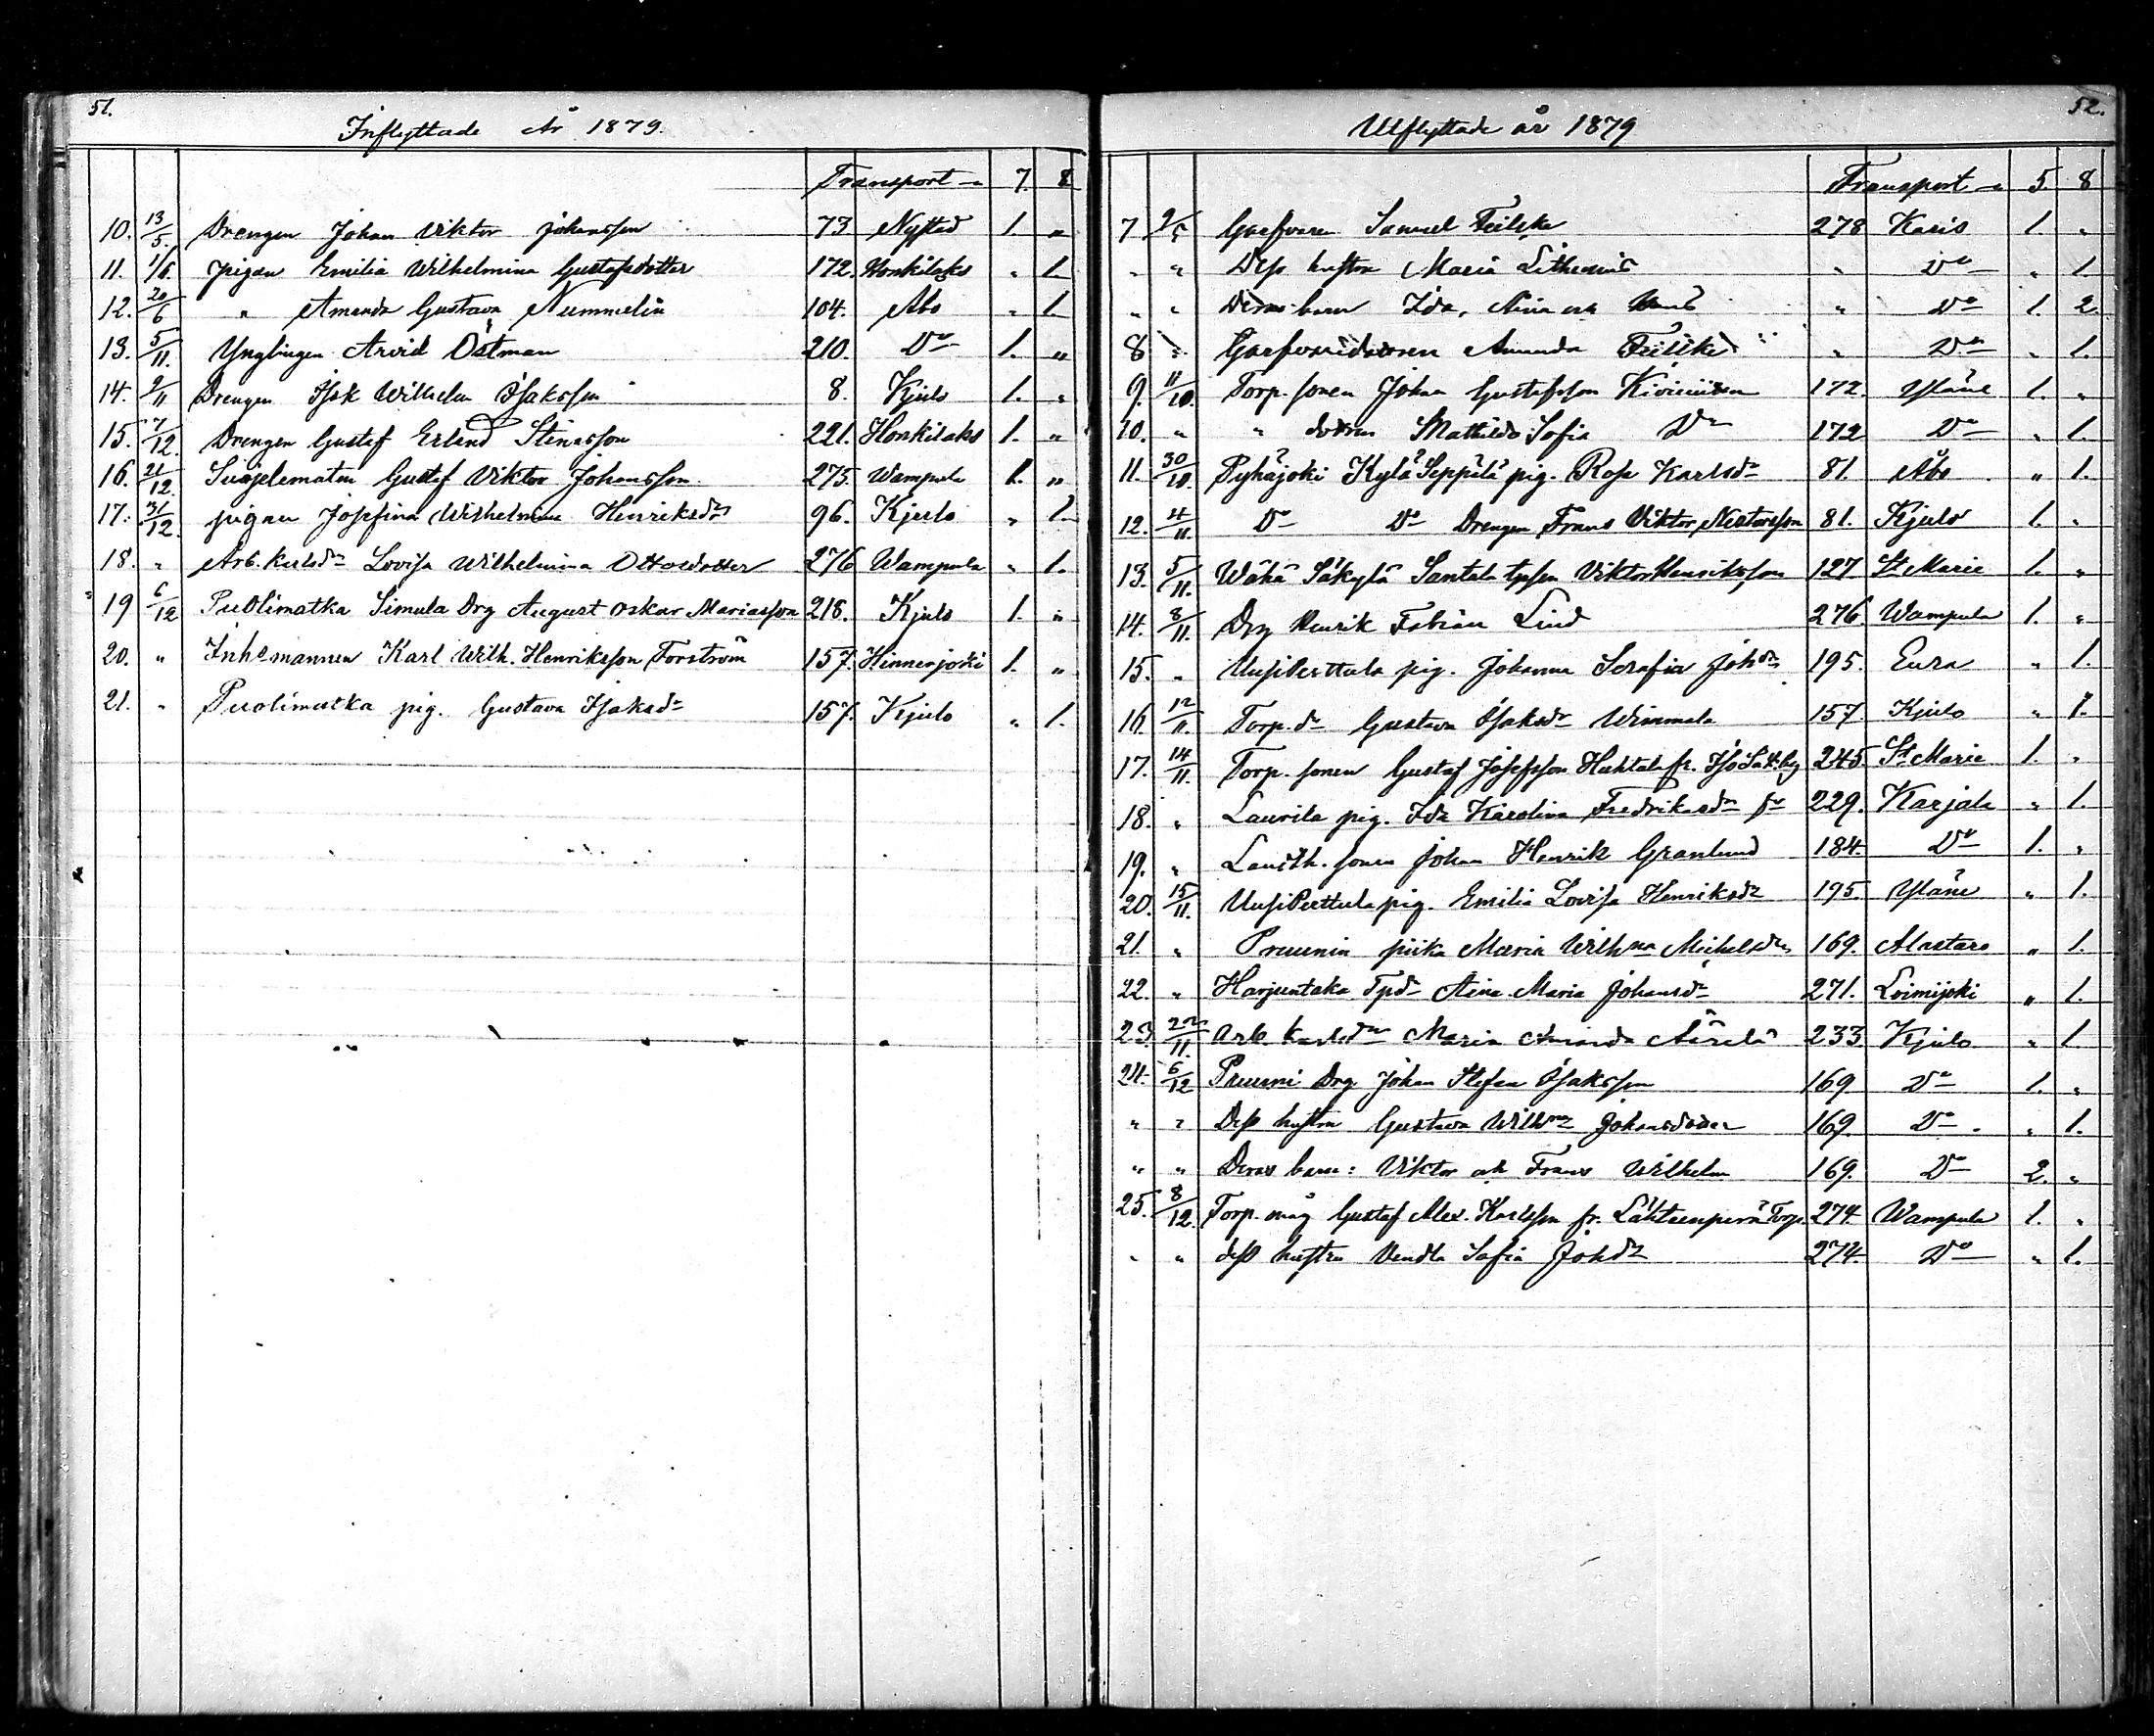 51.
Inflyttade År 1879.
Transport 7. 8
10. 13/5. Drengen Johan Viktor Johansson 73 Nystad 1. "
11. 1/6. Pigan Emilia Wilhelmina Gustafsdotter 172. Honkilaks " 1.
12. 20/6 " Amanda Gustava Nummelin 104. Åbo " 1.
13. 5/11. Ynglingen Arvid Östman 210. Do 1. "
14. 9/11 Drengen Isak Wilhelm Isaksson 8. Kjulo 1. "
15. 7/12. Drengen Gustaf Erland Stinasson 221. Honkilaks 1. "
16. 21/12. Gustaf Viktor Johansson 275. Wampula 1. "
17. 31/12. pigan Josefina Wilhelmina Henriksdr 96. Kjulo " 1.
18. " Arb. karlsdr Lovisa Wilhelmina Ottosdotter 276 Wampula " 1.
19 6/12 Puolimatka Simula Drg August Oskar Mariasson 218. Kjulo 1. "
20. " Inhesmannen Karl Wilh. Henriksson Forström 157. Hinnerjoki 1. "
21. " Puolimatka pig. Gustava Isaksdr 157. Kjulo " 1.
52.
Utflyttade år 1879
Transport 5. 8
7. Garfvaren Samuel 278 Karis 1. "
" " Dess hustru Maria " Do " 1.
" " Deras barn Ida, Aina och " Do 1. 2.
8 Amanda " Do " 1.
9. 11/10. Torp. sonen Johan Gustafsson 172. Yläne 1. "
10. " " dottren Mathilda Sofia Do 172 Do " 1.
11. 30/10. Pyhäjoki Kylä Seppälä pig. Rosa Karlsdr 81. Åbo " 1.
12. 4/11. Do Do Drengen Frans Viktor Nestorsson 81. Kjulo 1. "
13. 5/11. Wähä Säkylä Santala Viktor Henriksson 127 St Marie 1. "
14. 8/11. Drg Henrik Fabian Lind 276. Wampula 1. "
15. " UusiPerttula pig. Johanna Serafia Johdr 195. Eura " 1.
16. 12/11. Torp. dr Gustava Isaksdr Wimmala 157 Kjulo " 1.
17. 14/11. Torp. sonen Gustaf Josefsson Huhtala fr. Iso Säk. by 245. St Marie 1. "
18. " Laurila pig. Ida Karolina Fredriksdr 229. Karjala " 1.
19. " Landth. sonen Johan Henrik Granlund 184. Do 1. "
20. 15/11. UusiPerttula pig. Emilia Lovisa Henriksdr 195. Yläne " 1.
21. " Pruunin piika Maria Wilhna Michelsdr 169. Alastaro " 1.
22. " Harjuntaka Tpdr Aina Maria Johansdr 271. Loimijoki " 1.
23. 22/11. Arb karlsdr Maria Amanda 233 Kjulo " 1.
24. 6/12 Pruuni Drg Johan Stefan Isaksson 169 Do 1. "
" " Dess hustru Gustava Wilhna Johansdotter 169. Do " 1.
" " Deras barn: Viktor och Frans Wilhelm 169. Do 2. "
25. 8/12. Torp. måg Gustaf Alex. Karlsson fr. Lähteenperä Torp. 274 Wampula 1. "
" " dess hustru Vendla Sofia Johdr 274. Do " 1.